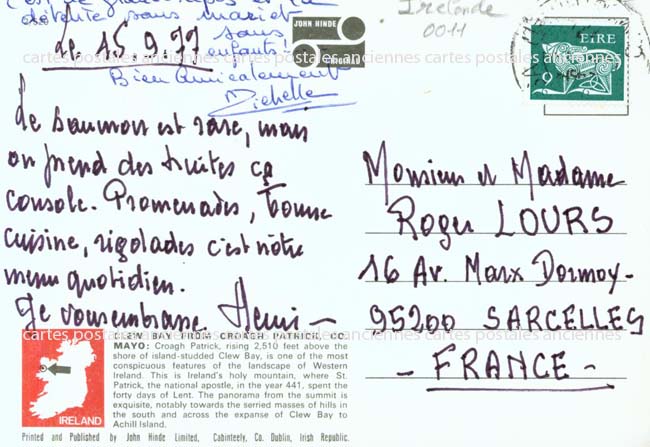 c'est le grand repos et la
détente sans mari et
sans
enfants!
Le 15.9.77
Bien amicalement
Michelle
JOHN HINDE
Irelande
0011
EIRE
9
cartes postales anciennes cartes postales anciennes cartes postales anciennes
Le saumon est rare, mais
on prend des truites ça
console. Promenades, bonne
cuisine, rigolades c'est nôtre
menu quotidien.
Je vous embrasse Henri
Monsieur et Madame
Roger LOURS
16 Av. Marx Dormoy-
95200 SARCELLES
- FRANCE -
cartes postales anciennes cartes postales anciennes cartes postales anciennes
CLEW BAY FROM CROAGH PATRICK, CO.
MAYO: Croagh Patrick, rising 2,510 feet above the
shore of island-studded Clew Bay, is one of the most
conspicuous features of the landscape of Western
Ireland. This is Ireland's holy mountain, where St.
Patrick, the national apostle, in the year 441, spent the
forty days of Lent. The panorama from the summit is
exquisite, notably towards the serried masses of hills in
the south and across the expanse of Clew Bay to
Achill Island.
IRELAND
Printed and Published by John Hinde Limited, Cabinteely, Co. Dublin, Irish Republic.